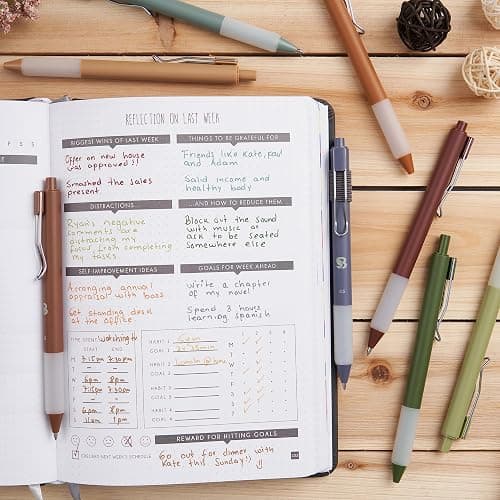 REFLECTION ON LAST WEEK
BIGGEST WINS OF LAST WEEK
Offer on new house
was approved!!
Smashed the sales
present
THINGS TO BE GRATEFUL FOR
Friends like Kate, paul
and Adam
Solid income and
healthy body
DISTRACTIONS
Ryan's negative
comments are
distracting my
focus from completing
my tasks
...AND HOW TO REDUCE THEM
Block out the sound
with music or
ask to be seated
Somewhere else
SELF-IMPROVEMENT IDEAS
Arranging annual
appraisal with boss
Get standing desk
at the office
GOALS FOR WEEK AHEAD
Write a chapter
of my novel
Spend 3 hours
learning Spanish
TIME SPENT: Watching tv
START END
M 7:15pm 7:30pm
T –
W 6pm 8pm
T 7:15pm 7:30pm
F –
S 6pm 8pm
S 11am 1pm
HABIT 1
GOAL 1
HABIT 2
GOAL 2
HABIT 3
GOAL 3
HABIT 4
GOAL 4
1 2 3 4
M
T
W
T
F
S
S
REWARD FOR HITTING GOALS
Go out for dinner with
Kate this Sunday! :)